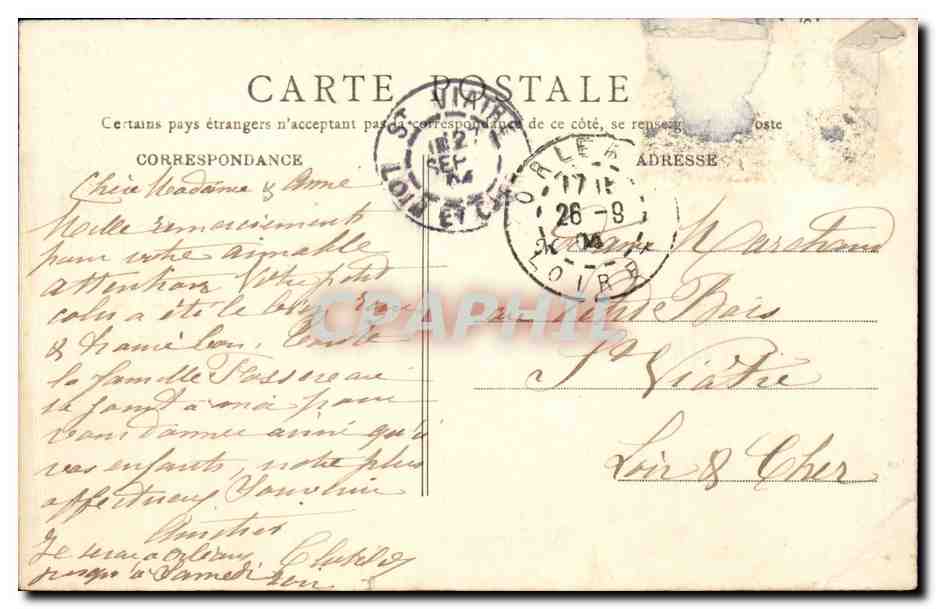 CARTE POSTALE
Certains pays étrangers n'acceptant pas la correspondance de ce côté, se renseigner Poste
CORRESPONDANCE
ADRESSE
ST VIATRE
27
SEPT
04
LOIR ET CHER
ORLEANS
26 - 9
04
LOIRET
Chère Madame & Anne
Mille remerciements
pour votre aimable
attention Votre petit
colis a été le bien
& trouvé bon. Toute
la famille Fassereau
se joint à moi pour
vous donner ainsi qu'à
vos enfants, notre plus
affectueux Souvenir
Amitiés
Je serai à Orléans
jusqu'à Samedi soir
Clotilde
Madame Marchand
au Bois
St Viâtre
Loir & Cher
CPAPHIL